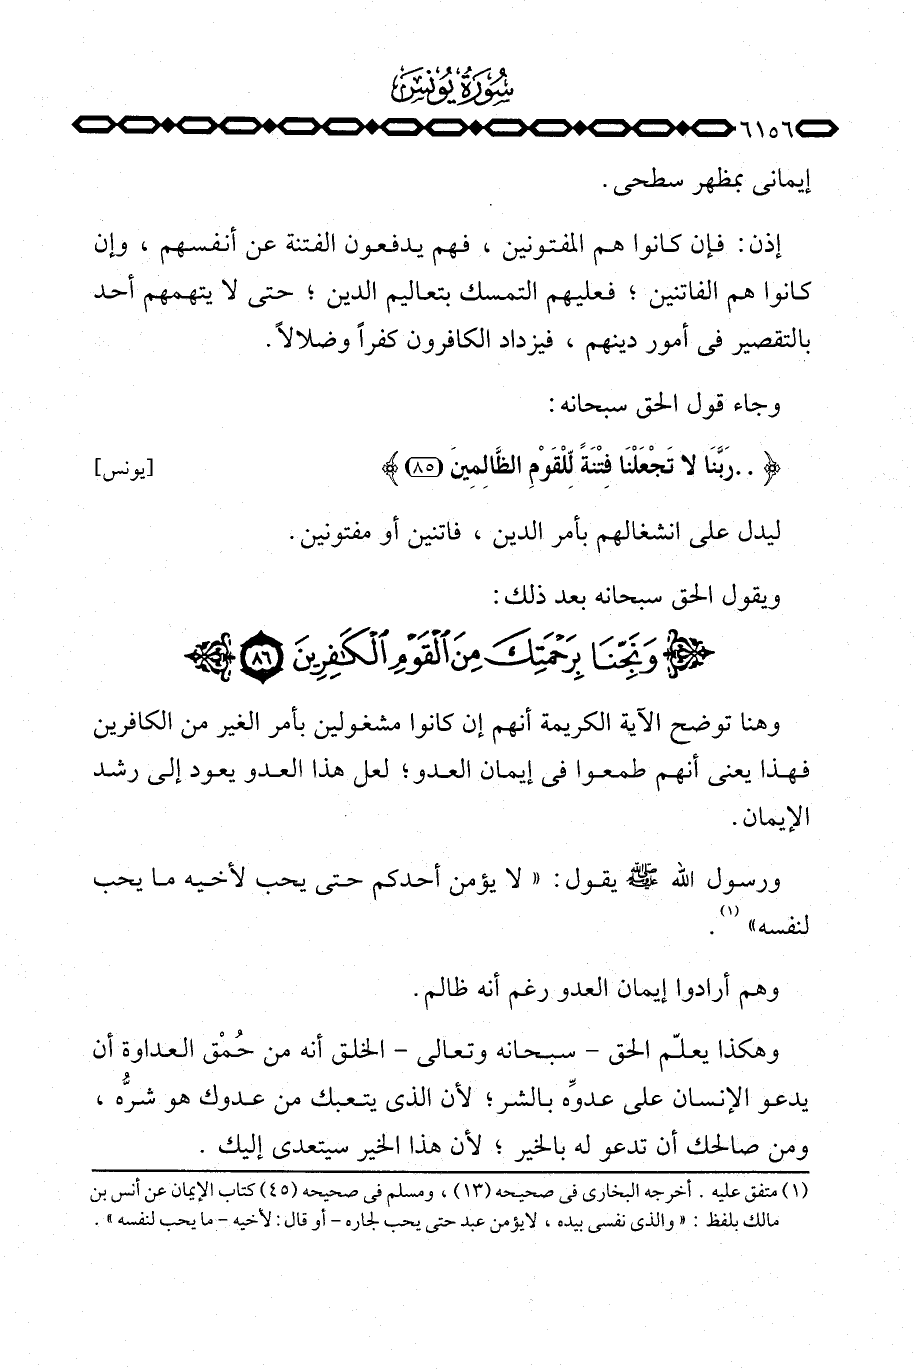 سُورَةُ يُونُسَ
٦١٥٦
إيمانى بمظهر سطحى.
إذن: فإن كانوا هم المفتونين ، فهم يدفعون الفتنة عن أنفسهم ، وإن
كانوا هم الفاتنين ؛ فعليهم التمسك بتعاليم الدين ؛ حتى لا يتهمهم أحد
بالتقصير فى أمور دينهم ، فيزداد الكافرون كفراً وضلالاً.
وجاء قول الحق سبحانه:
﴿ . .رَبَّنَا لا تَجْعَلْنَا فِتْنَةً لِّلْقَوْمِ الظَّالِمِينَ (٨٥) ﴾ [يونس]
ليدل على انشغالهم بأمر الدين ، فاتنين أو مفتونين.
ويقول الحق سبحانه بعد ذلك:
﴿ وَنَجِّنَا بِرَحْمَتِكَ مِنَ ٱلْقَوْمِ ٱلْكَٰفِرِينَ ٨٦ ﴾
وهنا توضح الآية الكريمة أنهم إن كانوا مشغولين بأمر الغير من الكافرين
فهذا يعنى أنهم طمعوا فى إيمان العدو؛ لعل هذا العدو يعود إلى رشد
الإيمان.
ورسول الله ﷺ يقول: « لا يؤمن أحدكم حتى يحب لأخيه ما يحب
لنفسه» (١) .
وهم أرادوا إيمان العدو رغم أنه ظالم.
وهكذا يعلّم الحق – سبحانه وتعالى – الخلق أنه من حُمْق العداوة أن
يدعو الإنسان على عدوِّه بالشر؛ لأن الذى يتعبك من عدوك هو شرُّه ،
ومن صالحك أن تدعو له بالخير ؛ لأن هذا الخير سيتعدى إليك .
(١) متفق عليه . أخرجه البخارى فى صحيحه (١٣) ، ومسلم فى صحيحه (٤٥) كتاب الإيمان عن أنس بن
مالك بلفظ : « والذى نفسى بيده ، لايؤمن عبد حتى يحب لجاره – أو قال: لأخيه – ما يحب لنفسه» .